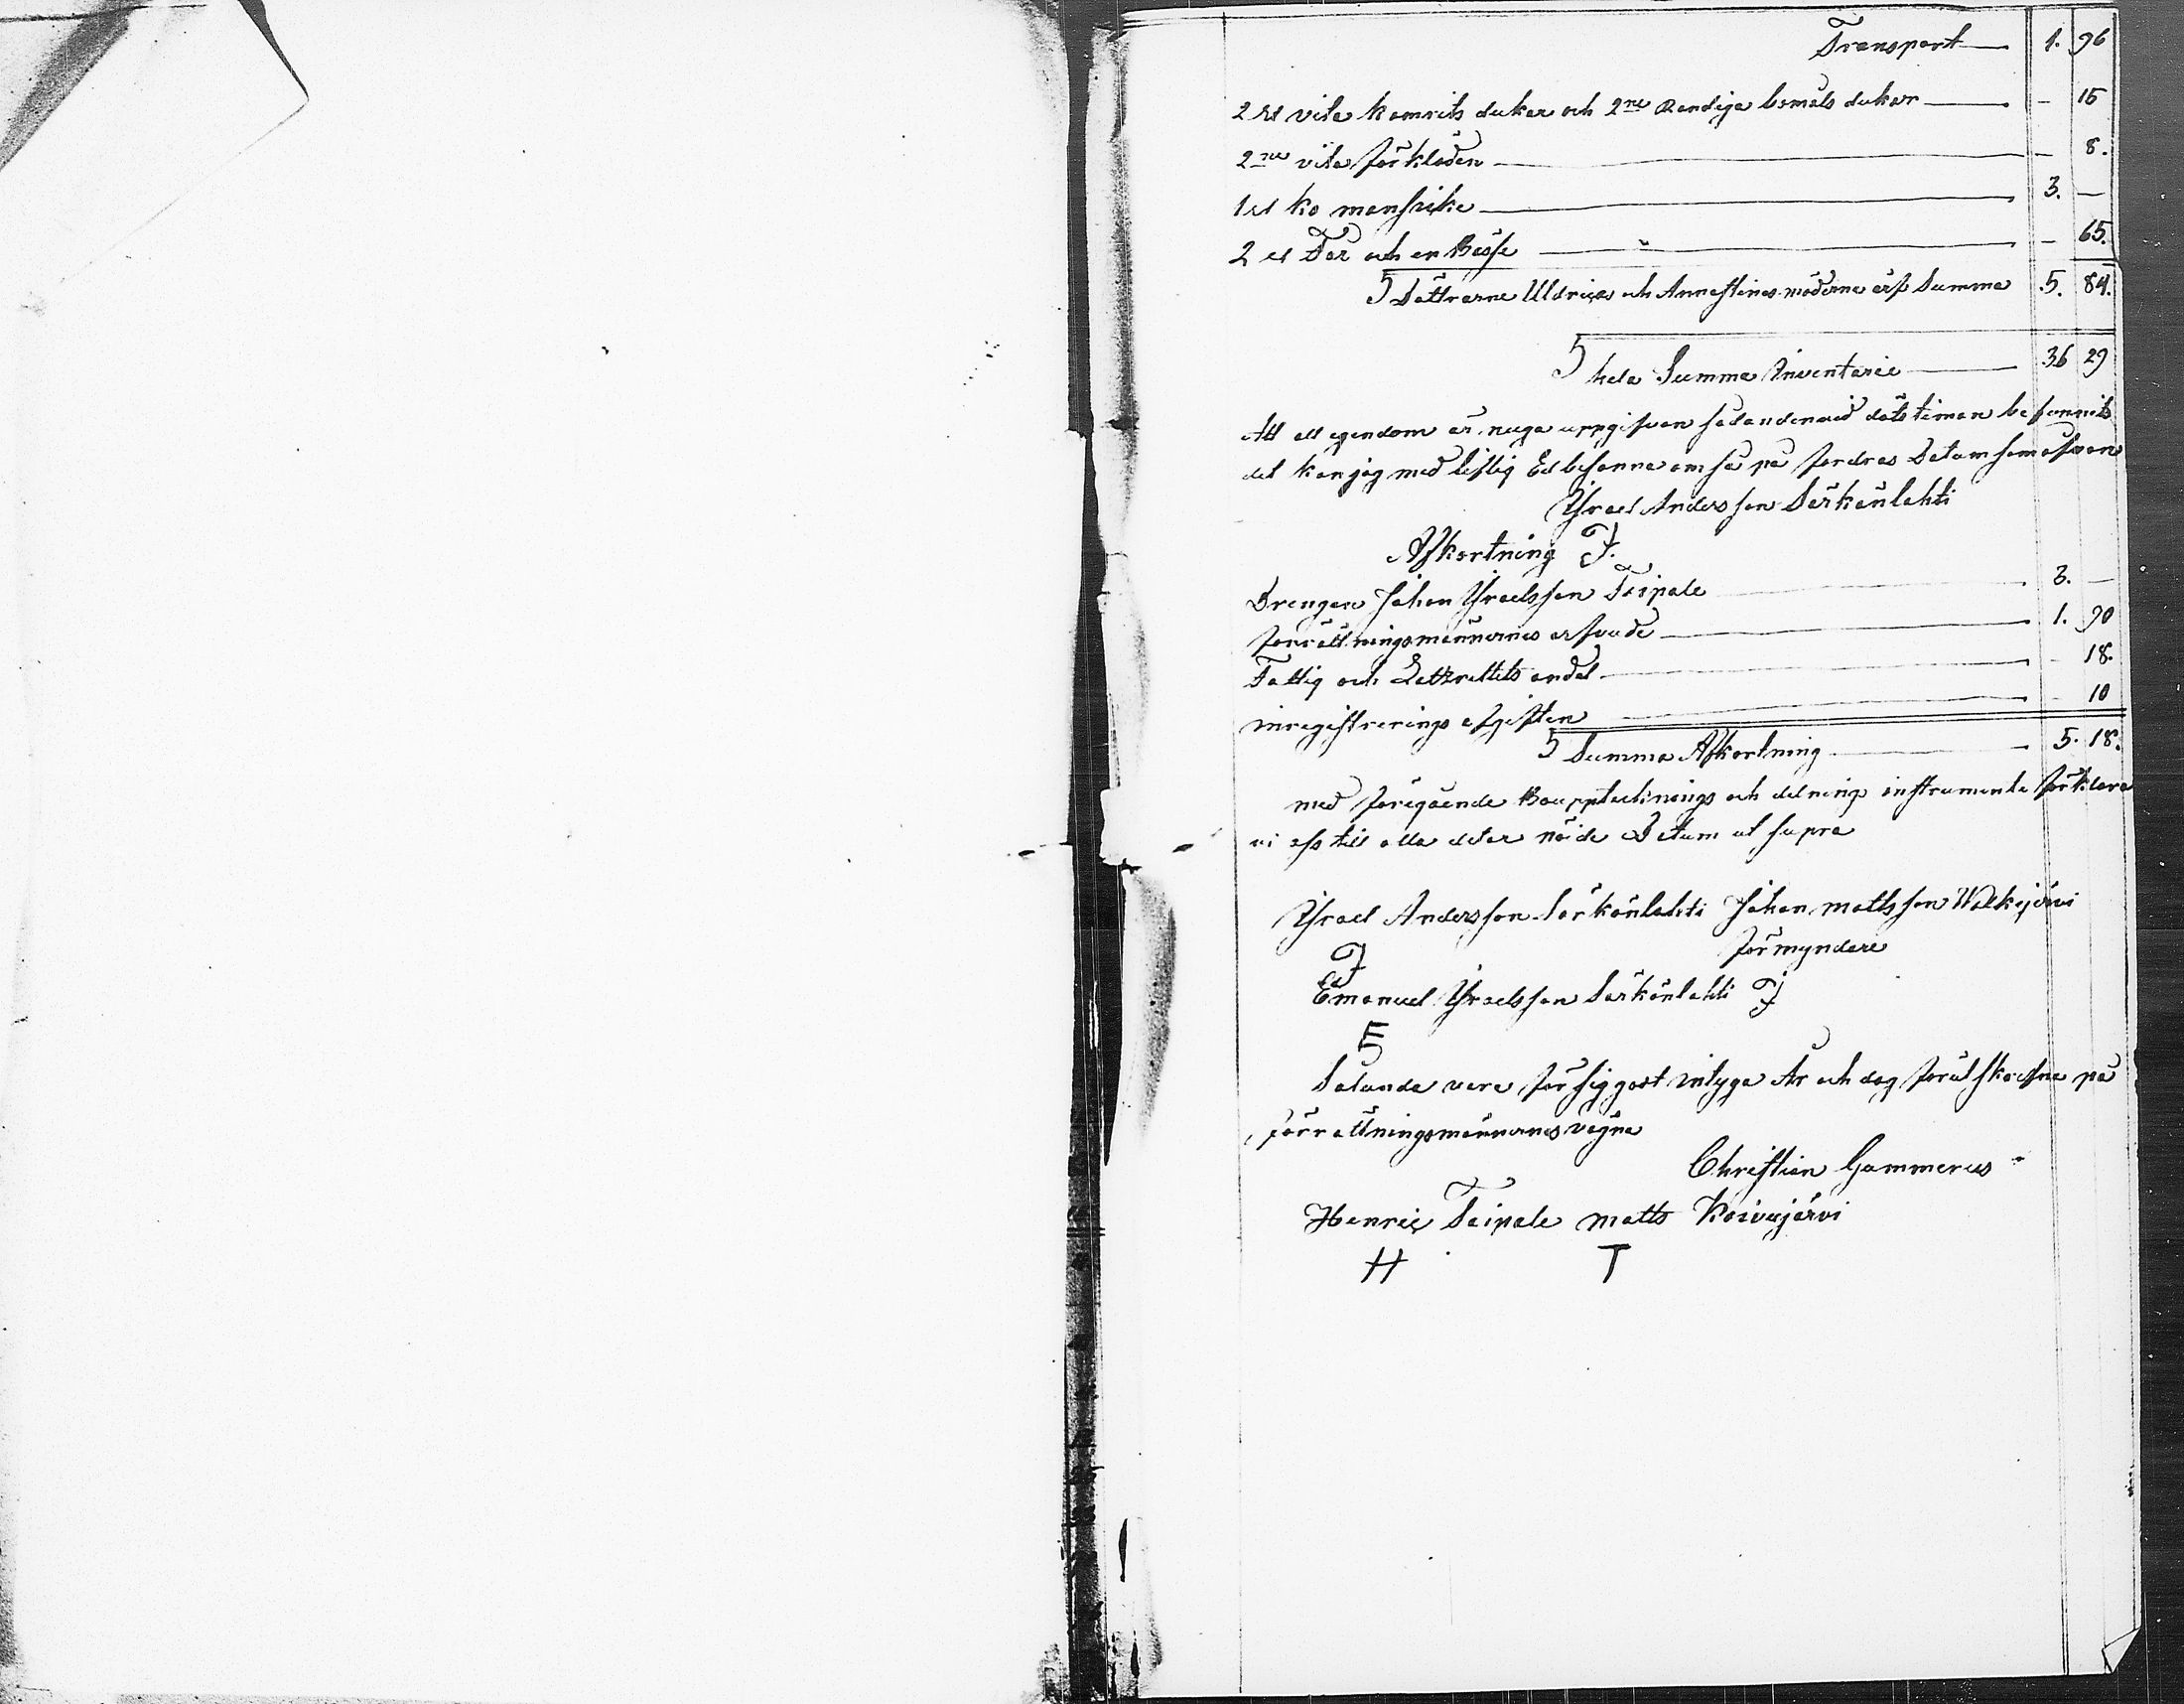 Transport 1. 96
2 st vita kamrits dukar och 2ne Randiga bomuls dukar - 15
2ne vita förkläden - 8.
1 st ko mansikke 3. -
2 st Får och en Bässe - 65.
Döttrarne Uldricas och Annestinas möderne arf Summa 5. 84.
hela Summa Inventarie 36 29
Att all egendom är noga uppgifven sådan den vid dötstiman befunnits
det kan jag med liflig Ed besanna om så på fordras Datum som ofvan
Ysrael Andersson Särkänlahti
Afkortning
Drengen Johan Ysraelsson Taipale 3. -
förrättningsmännernes arfvude 1. 90
Fattig och Lazarettets andel - 18.
inregistrerings afgiften - 10
Summa Afkortning 5. 18.
med föregående Boupptecknings och delnings instrumente förklara
vi oss till alla delar nöide Datum ut supra
Ysrael Andersson Särkänlahti Johan Mattsson Walkijärvi
förmyndare
Emanuel Ysraelsson Särkänlahti
E
Sålunda vara för sig gåt intyga År och dag förutskrefne på
förrättningsmännernes vägna
Christian Gummerus
Henric Taipale Matts Koivujärvi
H T